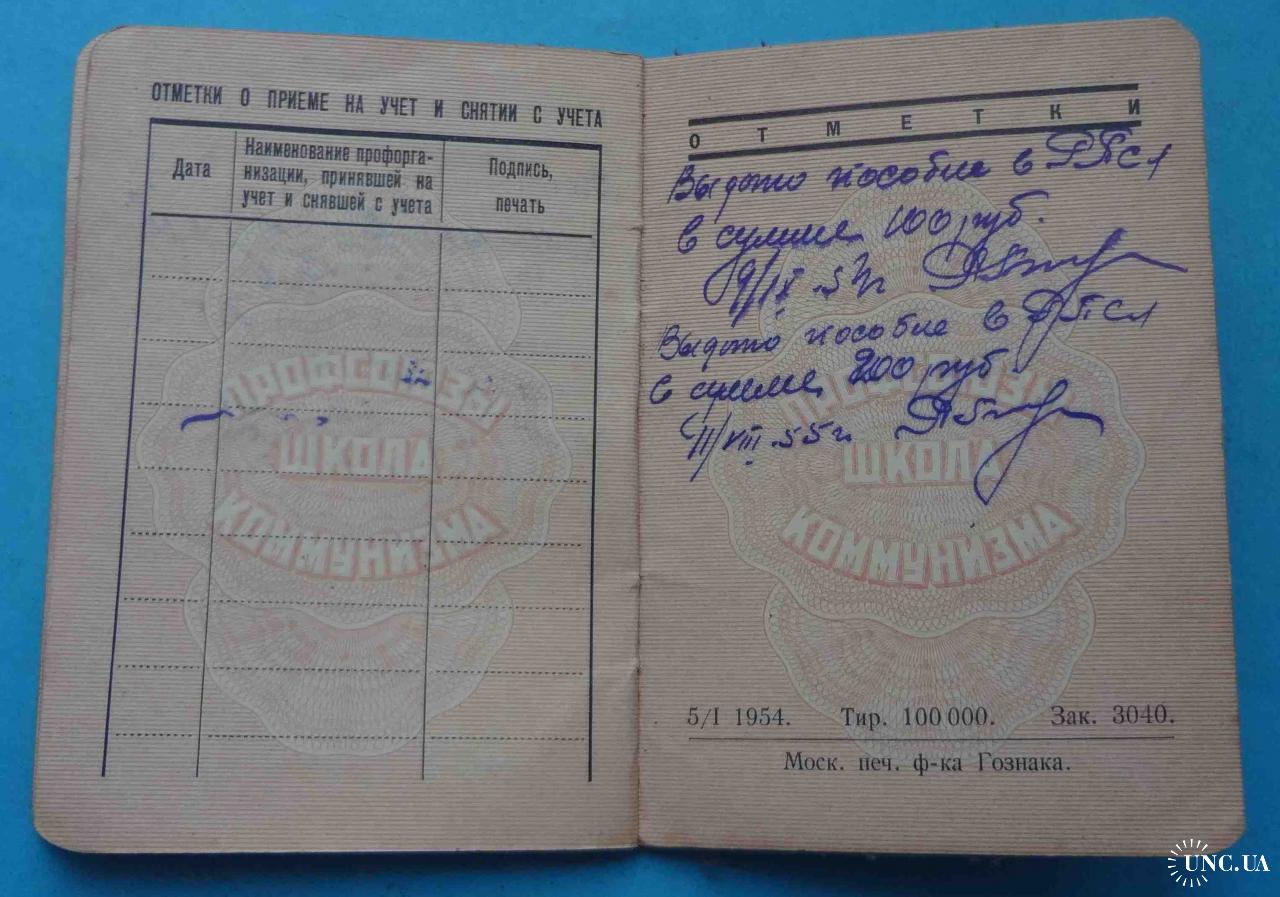 ОТМЕТКИ О ПРИЕМЕ НА УЧЕТ И СНЯТИИ С УЧЕТА
Дата
Наименование профорга-
низации, принявшей на
учет и снявшей с учета
Подпись,
печать
ПРОФСОЮЗЫ
ШКОЛА
КОММУНИЗМА
ОТМЕТКИ
Выдано пособие в
в сумме 100 руб.
Выдано пособие в
в сумме 200 руб
11/VIII.55г.
ПРОФСОЮЗЫ
ШКОЛА
КОММУНИЗМА
5/I 1954. Тир. 100 000. Зак. 3040.
Моск. печ. ф-ка Гознака.
UNC.UA